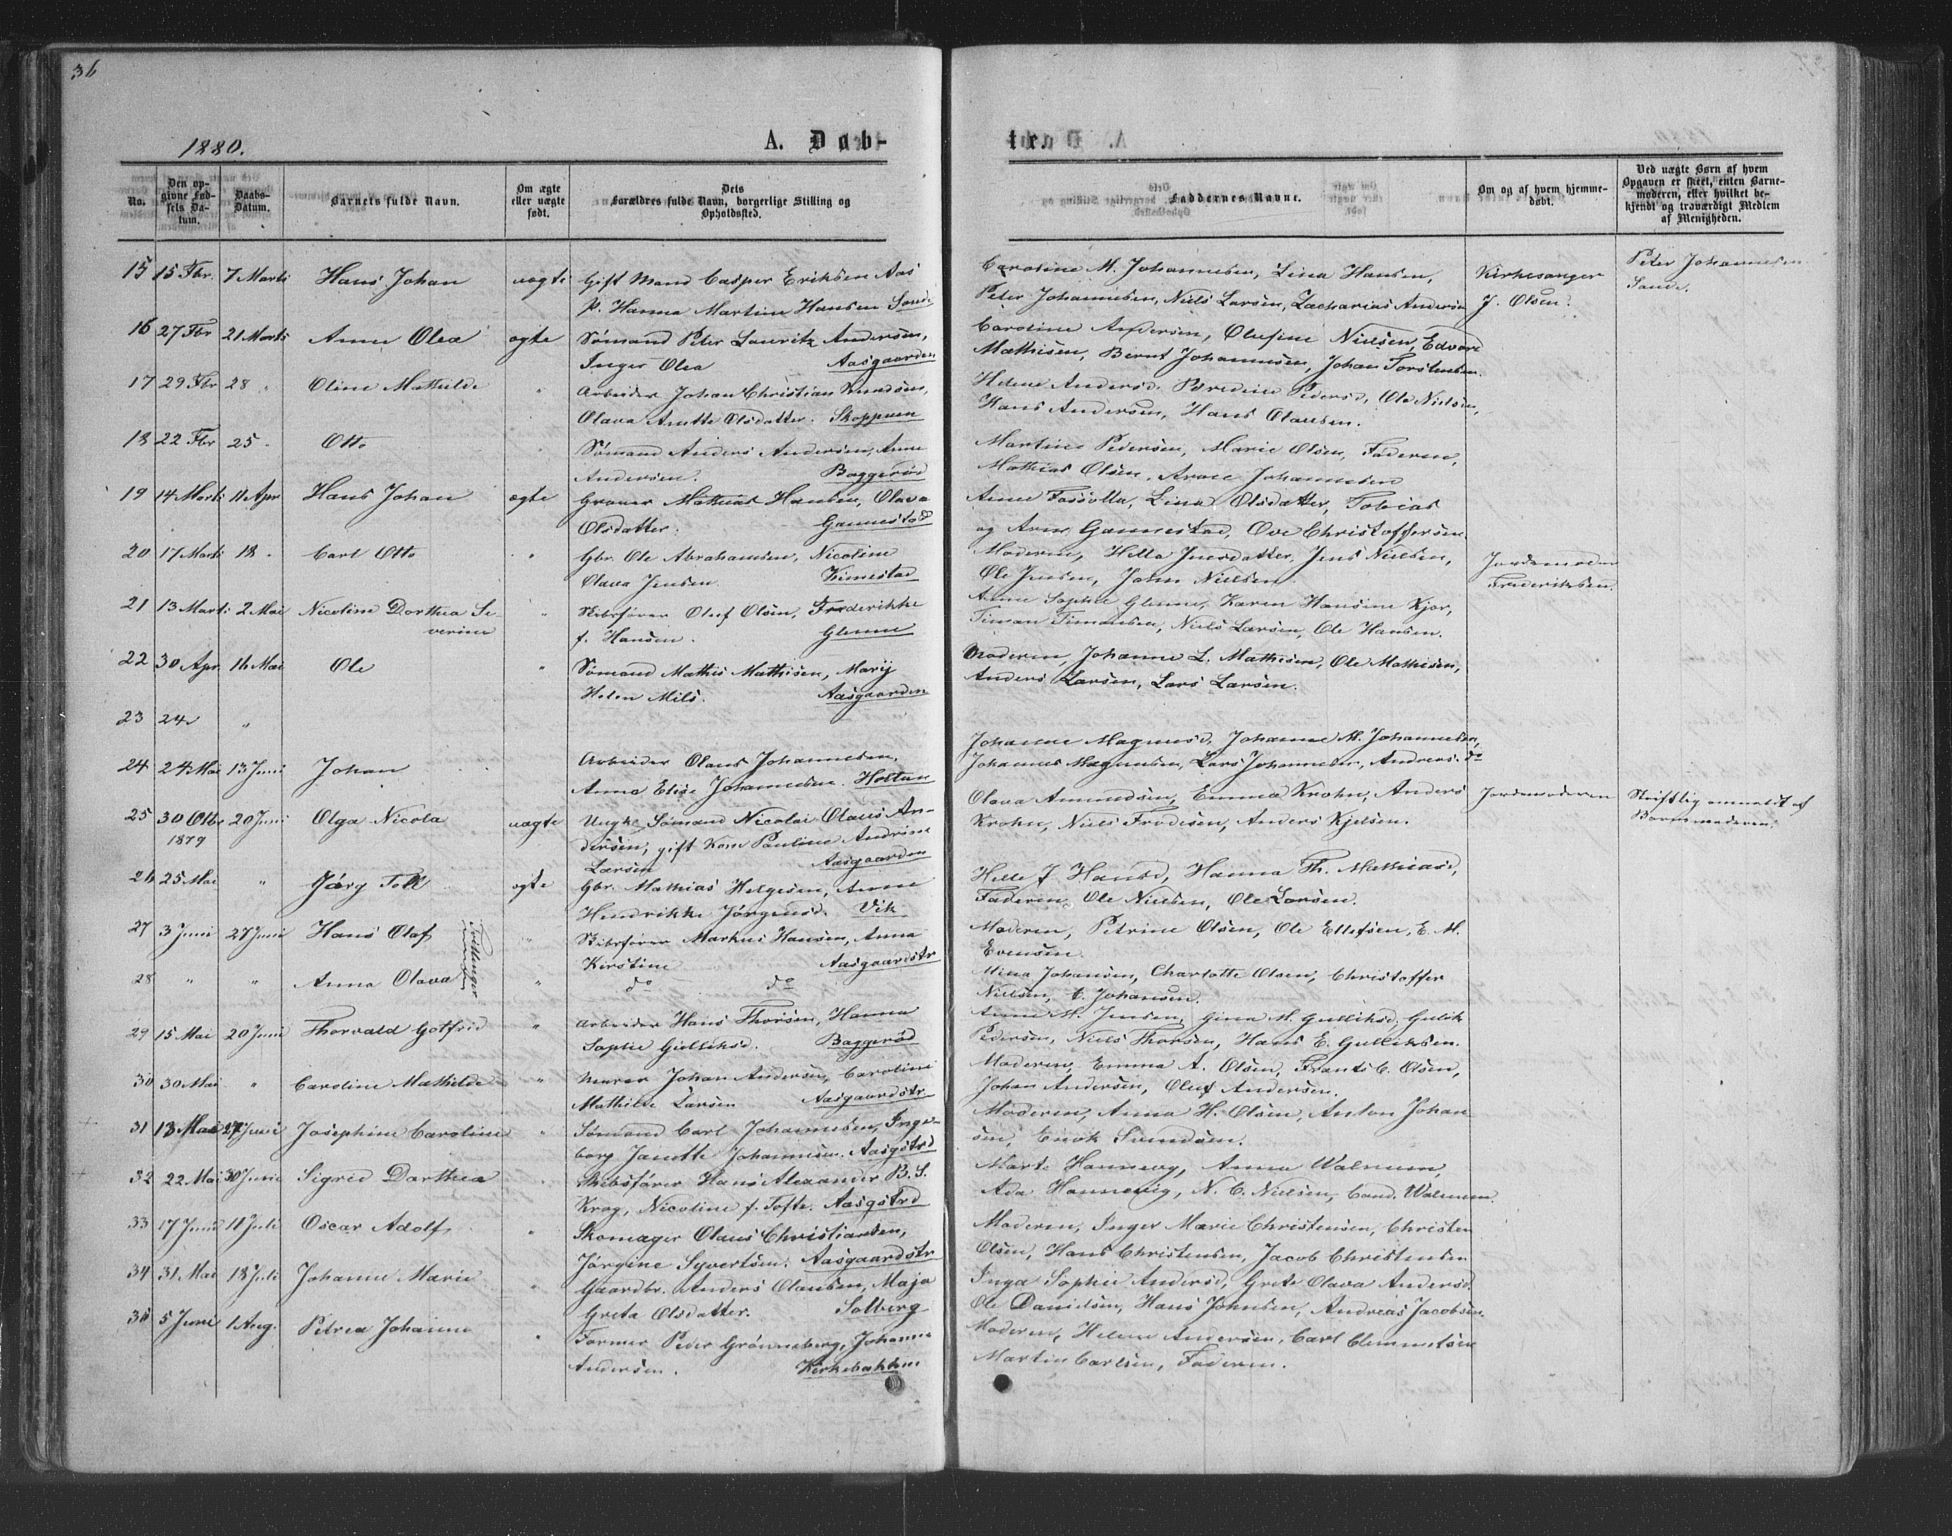 36
1880.
A. Døb-
te.
No.
Den op-
givne Fød-
sels Da-
tum.
Daabs-
Datum.
Barnets fulde Navn.
Om ægte
eller uægte
født.
Dets
Forældres fulde Navn, borgerlige Stilling og
Opholdssted.
Faddernes Navne.
Om og af hvem hjemme-
døbt.
Ved uægte Børn af hvem
Opgaven er skeet, enten Barne-
moderen, eller hvilket be-
kjendt og troværdigt Medlem
af Menigheden.
15 15 Fbr. 7 Marts Hans Johan uægte Gift Mand Casper Eriksen Aas
P. Hanna Martine Hansen Sande
Caroline M. Johannesen, Lina Hansen,
Peter Johannesen, Niels Larsen, Zacharias Andersen
Kirkesanger
J. Olsen.
Peter Johannesen
Sande.
16 27 Fbr 21 Marts Anne Olea ægte Sømand Peter Lauritz Andersen,
Inger Olea Aasgaarden
Caroline Andersen, Olufine Nielsen, Edvard
Mathisen, Bernt Johannesen, Johan Torstensen.
17 29 Fbr 28 " Oline Mathilde " Arbeider Johan Christian Knudsen,
Olava Anette Olsdatter. Skoppum
Helene Andersd. Bredine Pedersd, Ole Nielsen,
Hans Andersen, Hans Olausen.
18 22 Fbr 25 " Otto Sømand Anders Andersen, Anne
Andersen. Baggerød
Martine Pedersen, Marie Olsen, Faderen,
Mathias Olsen, Johannesen
19 14 Marts 11 Apr Hans Johan ægte Graver Mathias Hansen, Olava
Olsdatter. Gannestad
Anne Fossolla, Lina Olsdatter, Tobias
og Arne Gannestad, Ove Christoffersen.
20 17 Marts 18 " Carl Otto " Gbr. Ole Abrahamsen, Nicoline
Olava Jensen. Kimestad
Moderen, Hella Jensdatter, Jens Nielsen,
Ole Jensen, John Nielsen.
Jordemoder
Frederiksen.
21 13 Marts 2 Mai Nicoline Dorthea Se-
verine " Skibsfører Oluf Olsen, Frederikke
f. Hansen. Glenne
Anne Sophie Glenne, Karen Hansine Kjær,
Timan Timansen, Niels Larsen, Ole Hansen.
22 30 Apr 16 Mai Ole " Sømand Mathis Mathisen, Marij
Helen Mils. Aasgaarden
Moderen, Johanne L. Mathisen, Ole Mathisen,
Anders Larsen, Lars Larsen.
23 24 "
24 24 Mai 13 Juni Johan Arbeider Olaus Johannesen,
Anne Elise Johannesen. Holtan
Johanne Magnusd, Johanne M. Johannesen,
Johannes Magnussen, Lars Johannesen, Anders do
25 30 Otbr 20 Juni Olga Nicola uægte Ungk. Sømand Nicolai Olaus An-
1879
dersen, gift Kone Pauline Andrine
Larsen Aasgaarden
Olava Amundsen, Emma Krohn, Anders
Krohn, Niels Frodesen, Anders Kjelsen.
Jordemoderen
Skriftlig anmeldt af
Barnemoderen.
26 25 Mai " Jørg Toll ægte Gbr. Mathias Helgesen, Anne
Hendrikke Jørgensd. Vik
Helle J. Hansd, Hanna Th. Mathiasd,
Faderen, Ole Nielsen, Ole Larsen.
27 3 Juni 27 Juni Hans Olaf " Skibsfører Markus Hansen, Anna
Kirstine Aasgaardstr
Moderen, Petrine Olsen, Ole Ellefsen, E. M.
Evensen.
Tvillinger
28 " " Anna Olava " do do
Mina Johansen, Charlotte Olsen, Christoffer
Nielsen, C. Johansen.
29 15 Mai 20 Juni Thorvald Gotfrid " Arbeider Hans Thorsen, Hanna
Sophie Gulliksd. Baggerød
Anne M. Jensen, Gina M. Gulliksd, Gulik
Pedersen, Niels Thorsen, Hans E. Gulliksen.
30 30 Mai " Caroline Mathilde " Murer Johan Andersen, Caroline
Mathilde Larsen Aasgaardstr
Moderen, Emma A. Olsen, Frants C. Olsen,
Johan Andersen, Oluf Andersen.
31 13 Mai 27 Juni Josephine Caroline " Sømand Carl Johannesen, Inge-
borg Janette Johannesen. Aasgstrd
Moderen, Anna H. Olsen, Anton Johan
sen, Enok Svendsen.
32 22 Mai 30 Juni Sigrid Dorthea " Skibsfører Hans Alexander B. S.
Krog, Nicoline f. Tofte. Aasgstrd
Marte Hannevig, Anna Walmum,
Ada Hannevig, N. C. Nielsen, Cand. Walmum.
33 17 Juni 11 Juli Oscar Adolf " Skomager Olaus Christiansen,
Jørgine Syvertsen. Aasgaardstr
Moderen, Inger Marie Christensen, Christen
Olsen, Hans Christensen, Jacob Christensen
34 31 Mai 18 Juli Johanne Marie " Gaardbr. Anders Olausen, Maja
Greta Olsdatter. Solberg
Inga Sophie Andersd, Grete Olava Andersd.
Ole Danielsen, Hans Johnsen, Andreas Jacobsen.
35 5 Juni 1 Aug. Petrea Johanne " Former Peder Grønneberg, Johanne
Andersen. Kirkebakken
Moderen, Helene Andersen, Carl Clemmetsen
Martin Carlsen, Faderen.